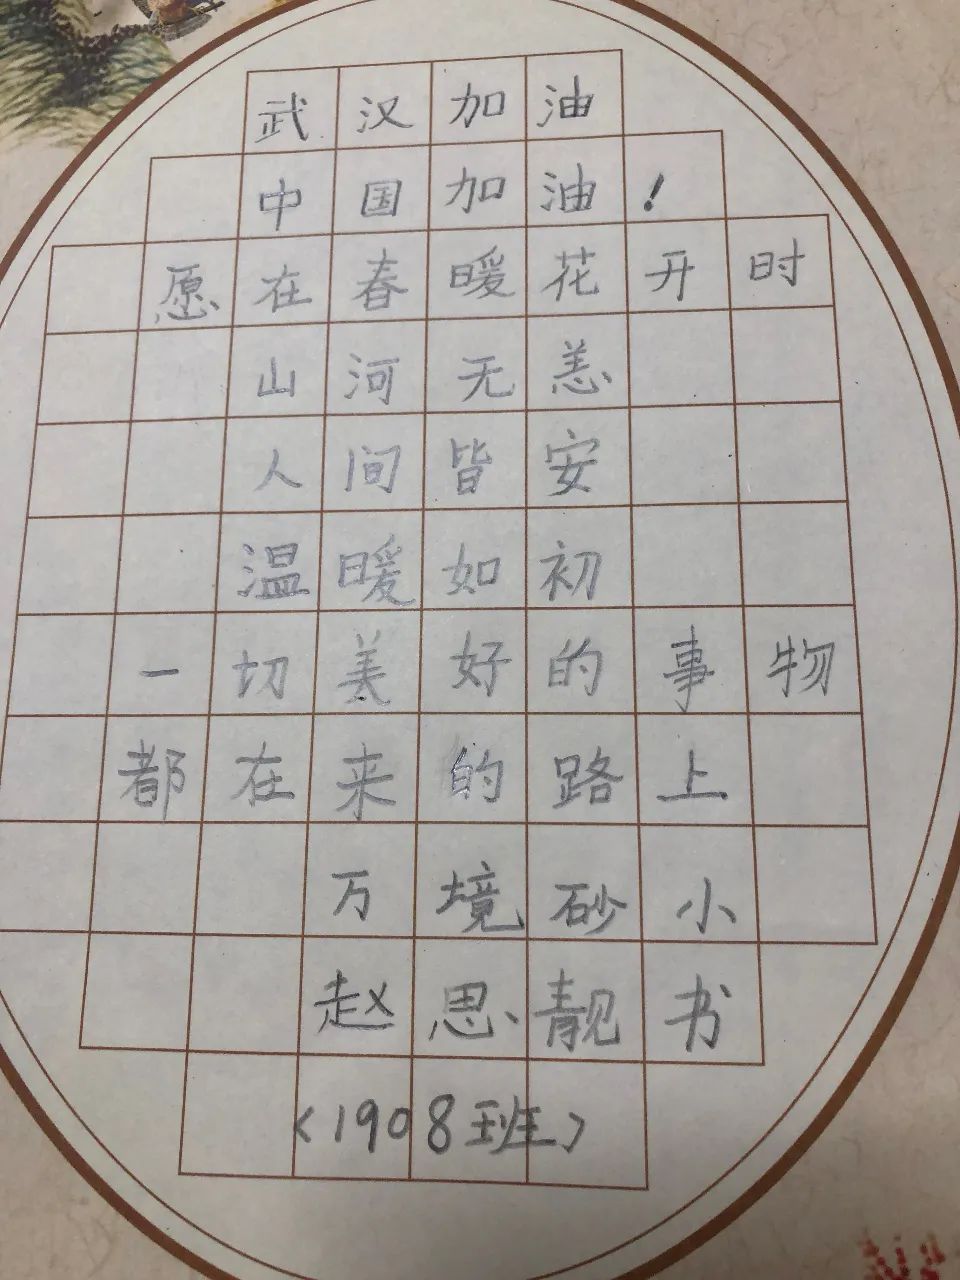 武汉加油
中国加油!
愿在春暖花开时
山河无恙
人间皆安
温暖如初
一切美好的事物
都在来的路上
万境砂小
赵思靓书
<1908班>